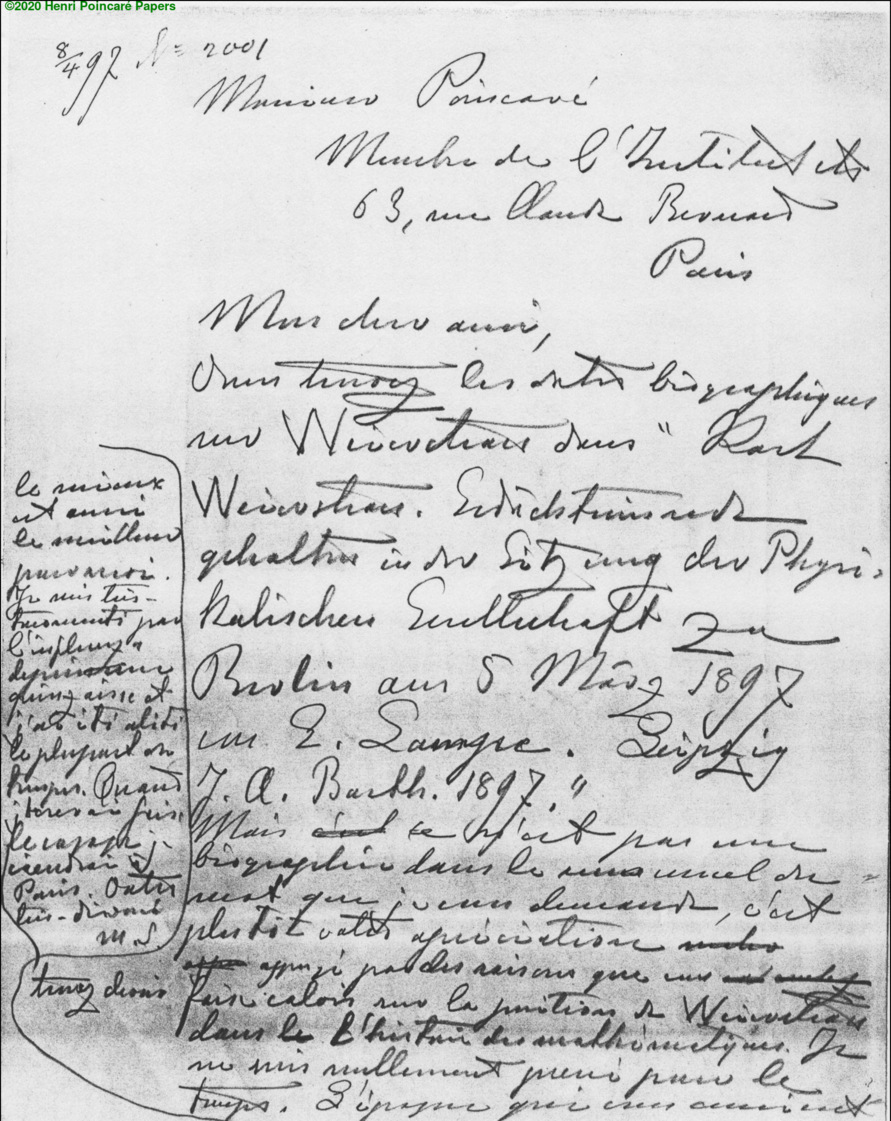 ©2020 Henri Poincaré Papers
8/4 97 N= 2001
Monsieur Poincaré
Membre de l'Institut etc
63, rue Claude Bernard
Paris
Mon cher ami,
Vous trouvez les dates biographiques
sur Weierstrass dans "Karl
Weierstrass. Gedächtnissrede
gehalten in der Sitzung der Physi-
kalischen Gesellschaft zu
Berlin am 5 März 1897
von E. Lampe. Leipzig
J. A. Barth. 1897."
Mais ce n'est pas une
biographie dans le sens usuel du
mot que je vous demande, c'est
plutôt votre apréciation
appuyé par des raisons que vous
fais valoir sur la position de Weierstrass
dans l'histoire des mathématiques. Je
ne suis nullement pressé pour le
temps. L'époque qui vous convient
le mieux
est aussi
le meilleur
pour moi.
Je suis très-
tourmenté par
l'influenza
depuis une
quinzaine et
j'ai été alité
la plupart du
temps. Quand
je
le voyage je
viendrai à
Paris. Votre
très-dévoué
M L